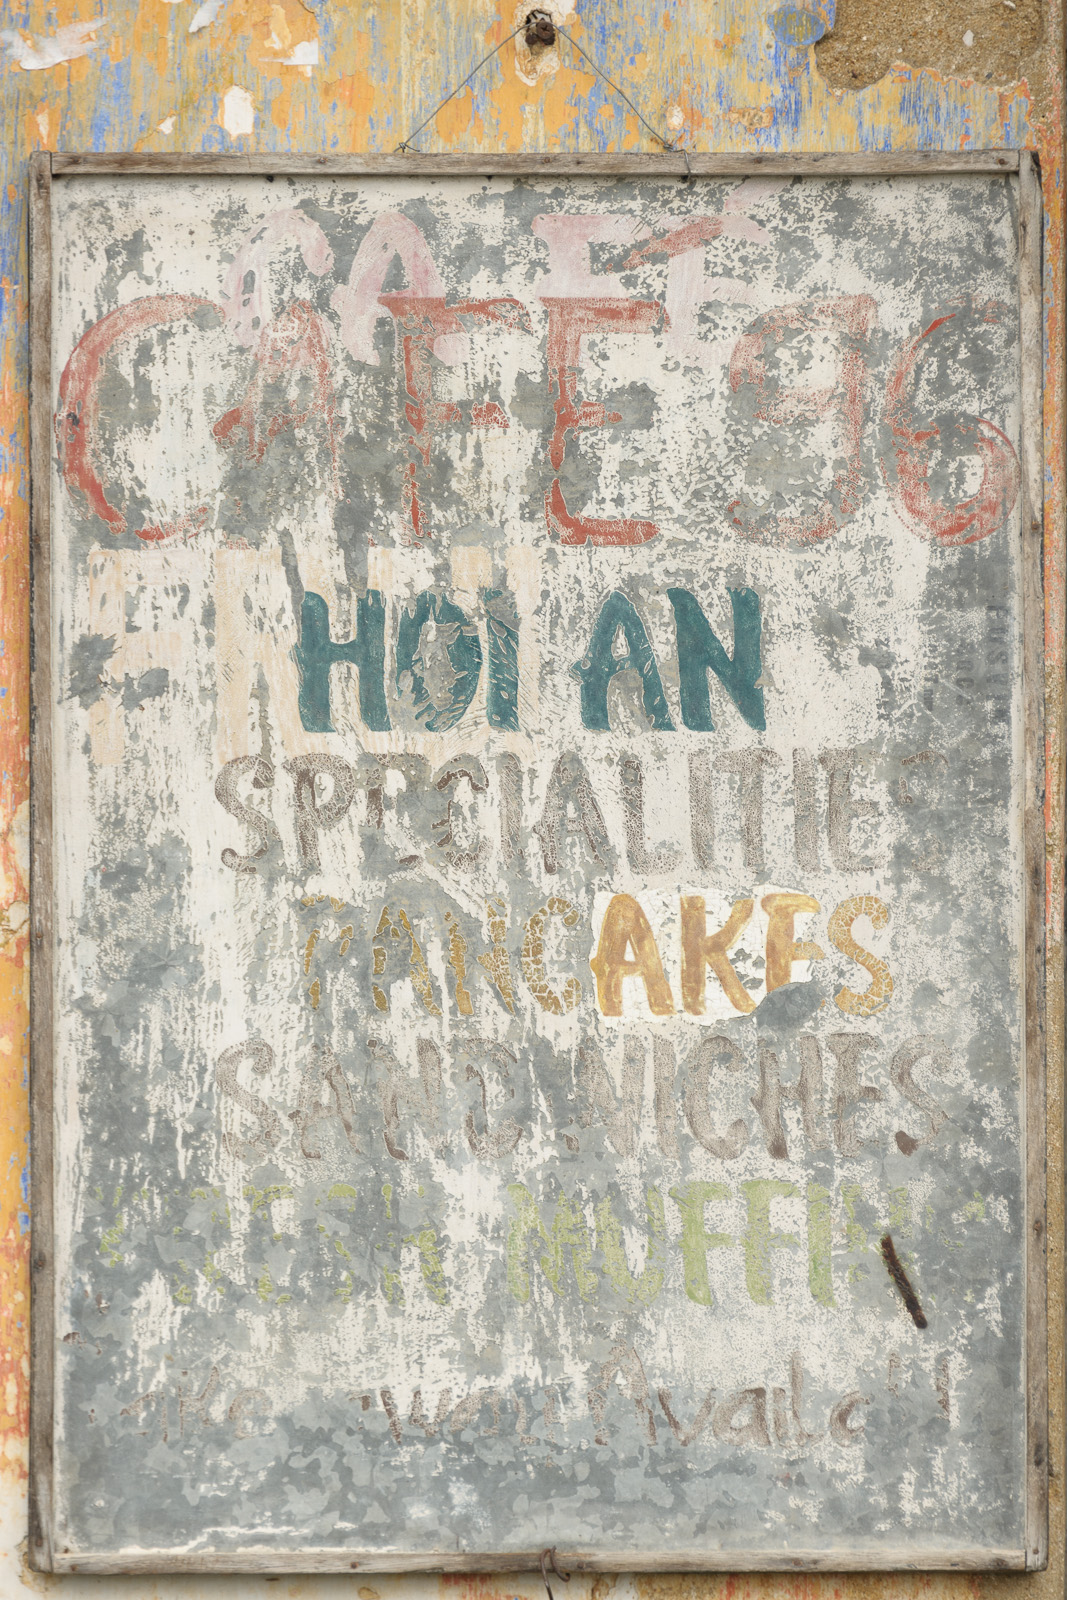 CAFÉ
CAFE 96
HOI AN
SPECIALITIES
PANCAKES
SANDWICHES
FRESH MUFFINS
Take away Available